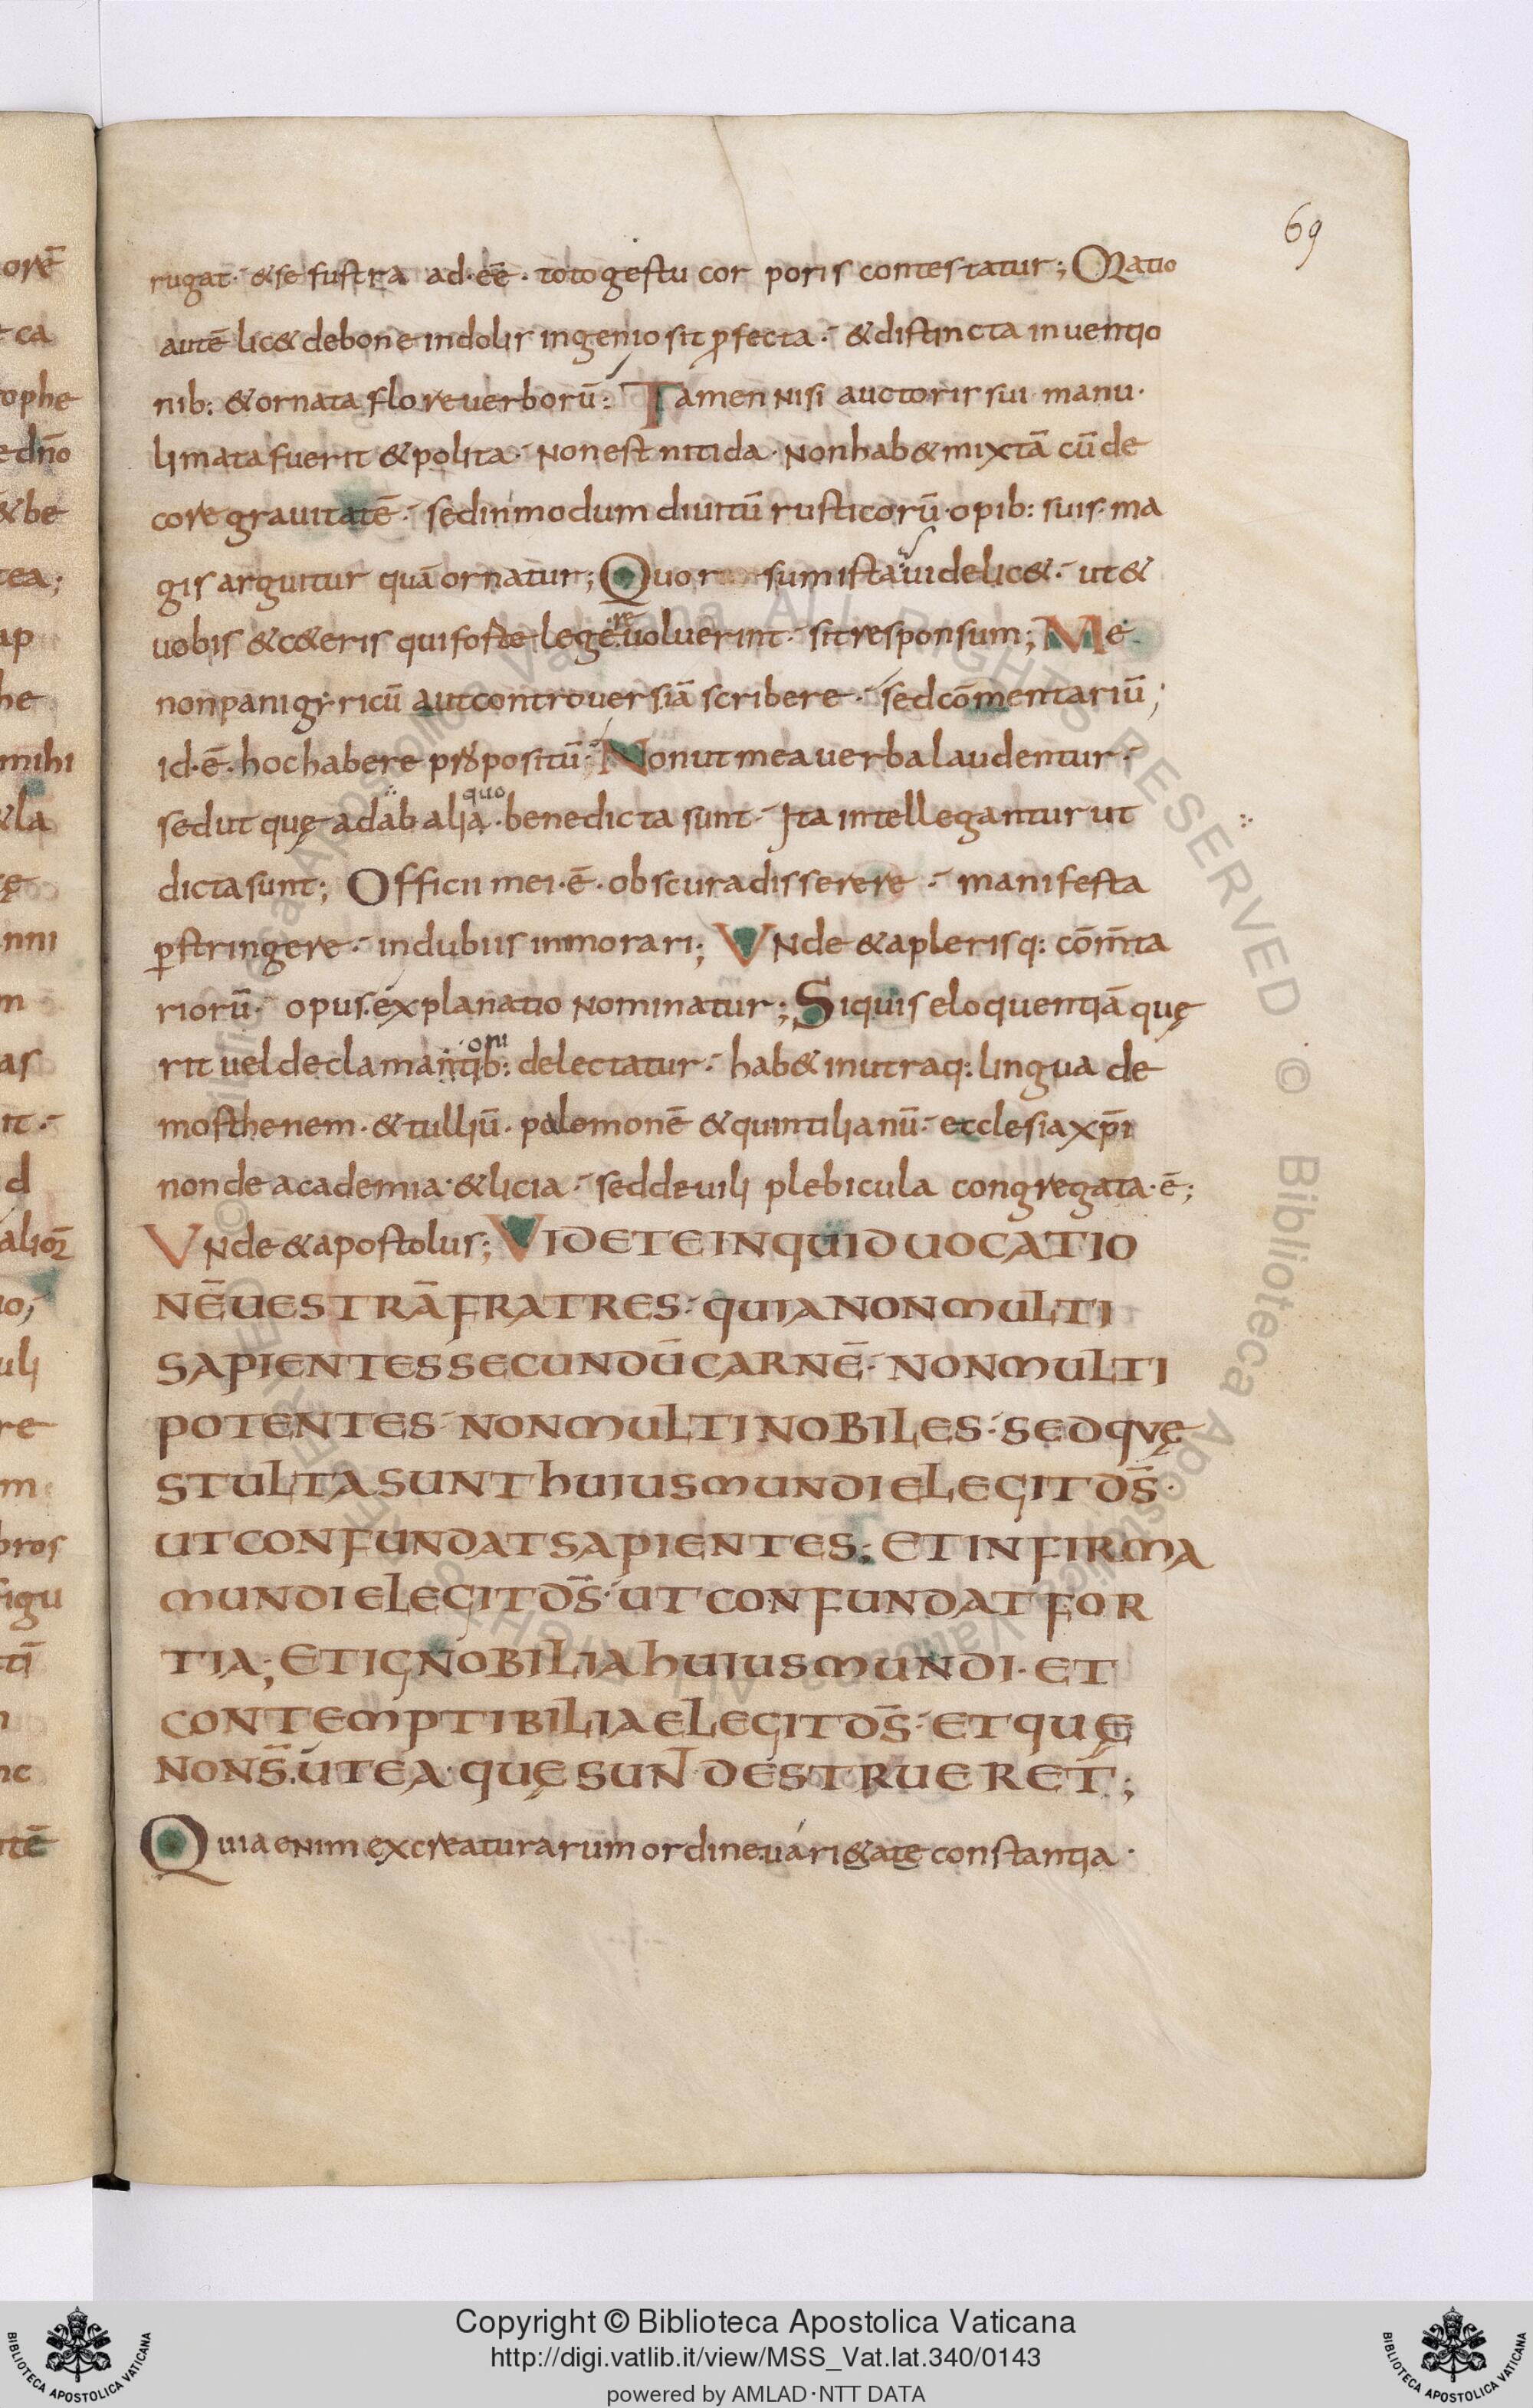 69
rugat· &se fustra ad·eē· totogestu cor poris contestatur; ORatio
autē lic& debone indolis ingenio sit ꝑfecta· &distincta inuentio
nib: &ornata flore uerborū: Tamen nisi auctoris sui manu·
limata fuerit &polita· non est nitida· non hab& mixtā cū de
core grauitatē· sed in modum diuitū rusticorū· opib: suis· ma
gis arguitur quā ornatur; Quor sum ista uidelic&· ut &
uobis &c&eris qui fofte legere uoluerint· sit responsum; Me
non panigyricū aut controuersiā scribere· sed cōmentariū;
id·ē· hoc habere propositū· Non ut mea uerba laudentur·
sed ut quę ad ab alia quo· benedicta sunt· Ita intellegantur ut
dicta sunt; Officii mei·ē· obscura disserere· manifesta
ꝑstringere· in dubiis inmorari; Vnde &a plerisq: cōm̄ta
riorū· opus explanatio nominatur; Si quis eloquentiā quę
rit uel declamantib: oni delectatur· hab& in utraq: lingua de
mosthenem· &tulliū· polemonē &quintilianū· ecclesia xp̄i
non de academia· &licia· sed de uili plebicula congregata·ē;
Vnde &apostolus; VIDETE INQUID UOCATIO
NĒ UESTRĀ FRATRES· QUIA NON MULTI
SAPIENTES SECUNDŪ CARNĒ· NON MULTI
POTENTES· NON MULTI NOBILES· SED QVĘ
STULTA SUNT HUIUS MUNDI ELEGIT D̄S·
UT CONFUNDAT SAPIENTES; ET INFIRMA
MUNDI ELEGIT D̄S· UT CONFUNDAT FOR
TIA; ET IGNOBILIA HUIUS MUNDI· ET
CONTEMPTIBILIA ELEGIT D̄S· ET QUĘ
NON S̄· UT EA· QUĘ SUNT DESTRUERET;
Quia enim ex creaturarum ordine uari&ate constantia·
Copyright © Biblioteca Apostolica Vaticana
http://digi.vatlib.it/view/MSS_Vat.lat.340/0143
powered by AMLAD·NTT DATA